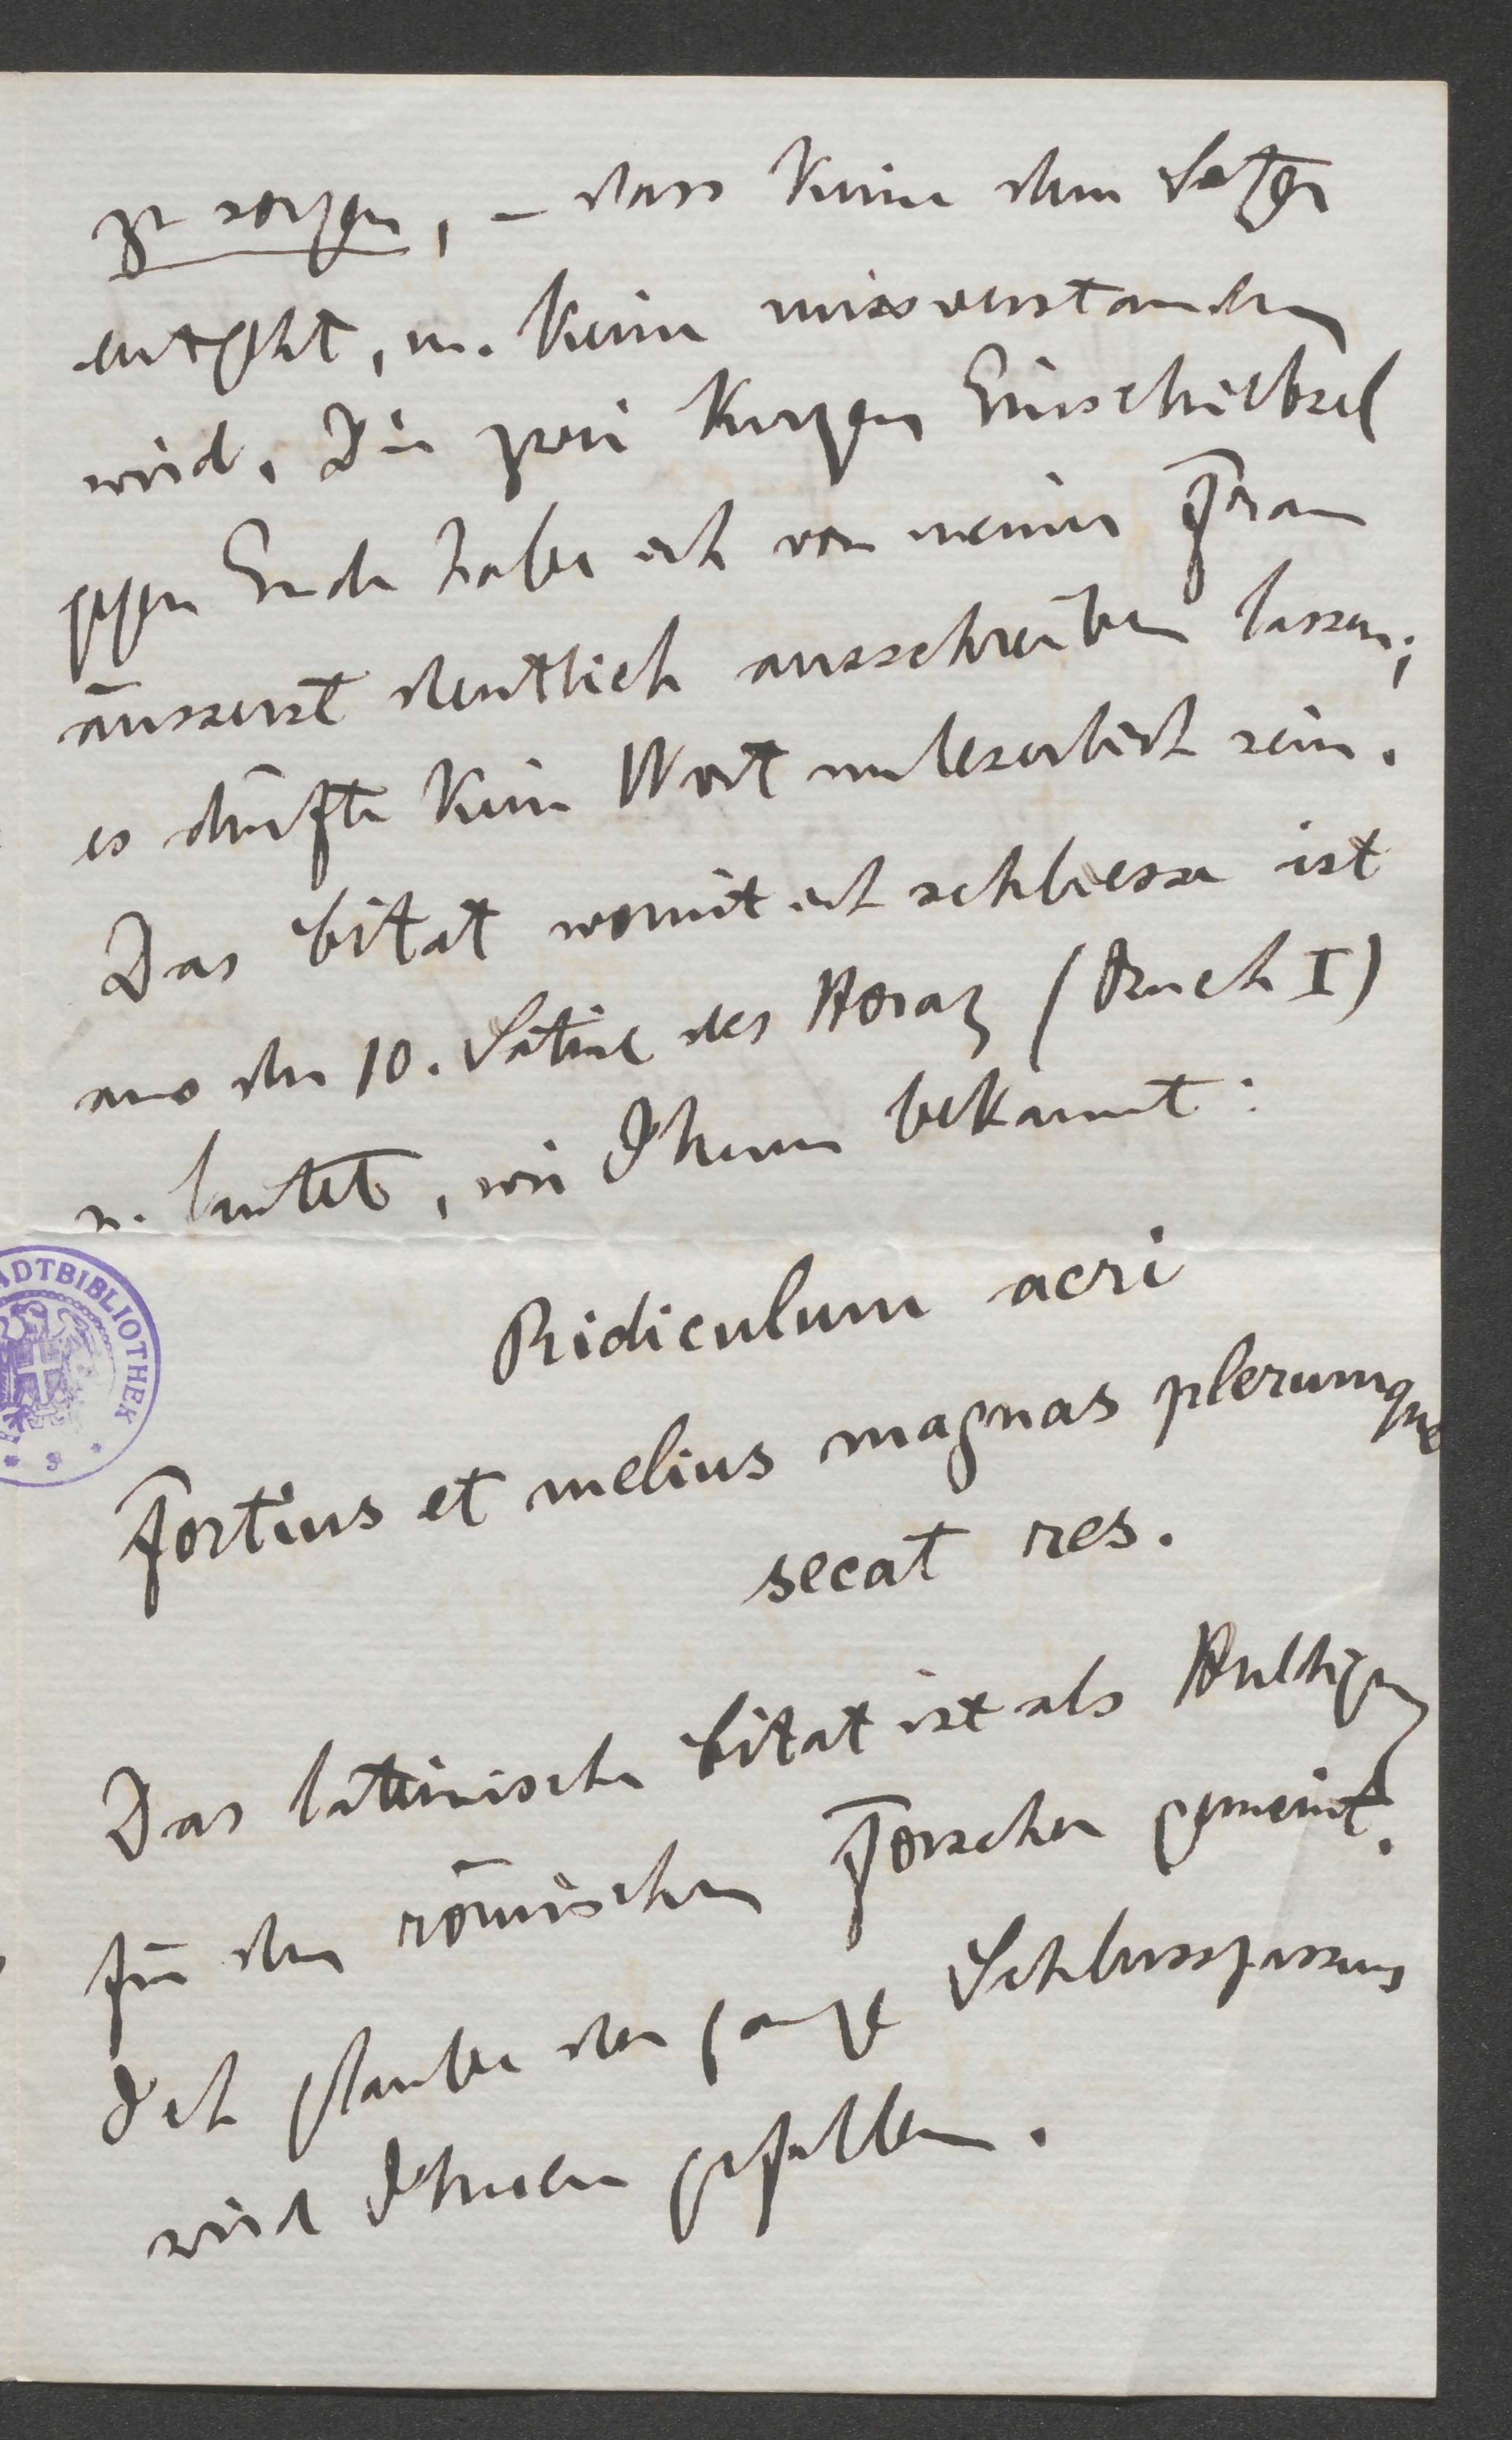 zu sorgen, – dass keine dem Setzer
entgeht, u. keine missverstanden
wird. Die zwei kurzen Einschiebsel
gegen Ende habe ich von meiner Frau
äusserst deutlich ausschreiben lassen;
es dürfte kein Wort unleserlich sein.
Das Citat womit ich schliesse ist
aus der 10. Satire des Horaz (Buch I)
u. lautet, wie Ihnen bekannt:
Ridiculum acri
Fortius et melius magnas plerumque
secat res.
ADTBIBLIOTHEK
Das lateinische Citat ist als Huldigung
für den römischen Forscher gemeint.
Ich glaube der ganze Schlusspassus
wird Ihnen gefallen.